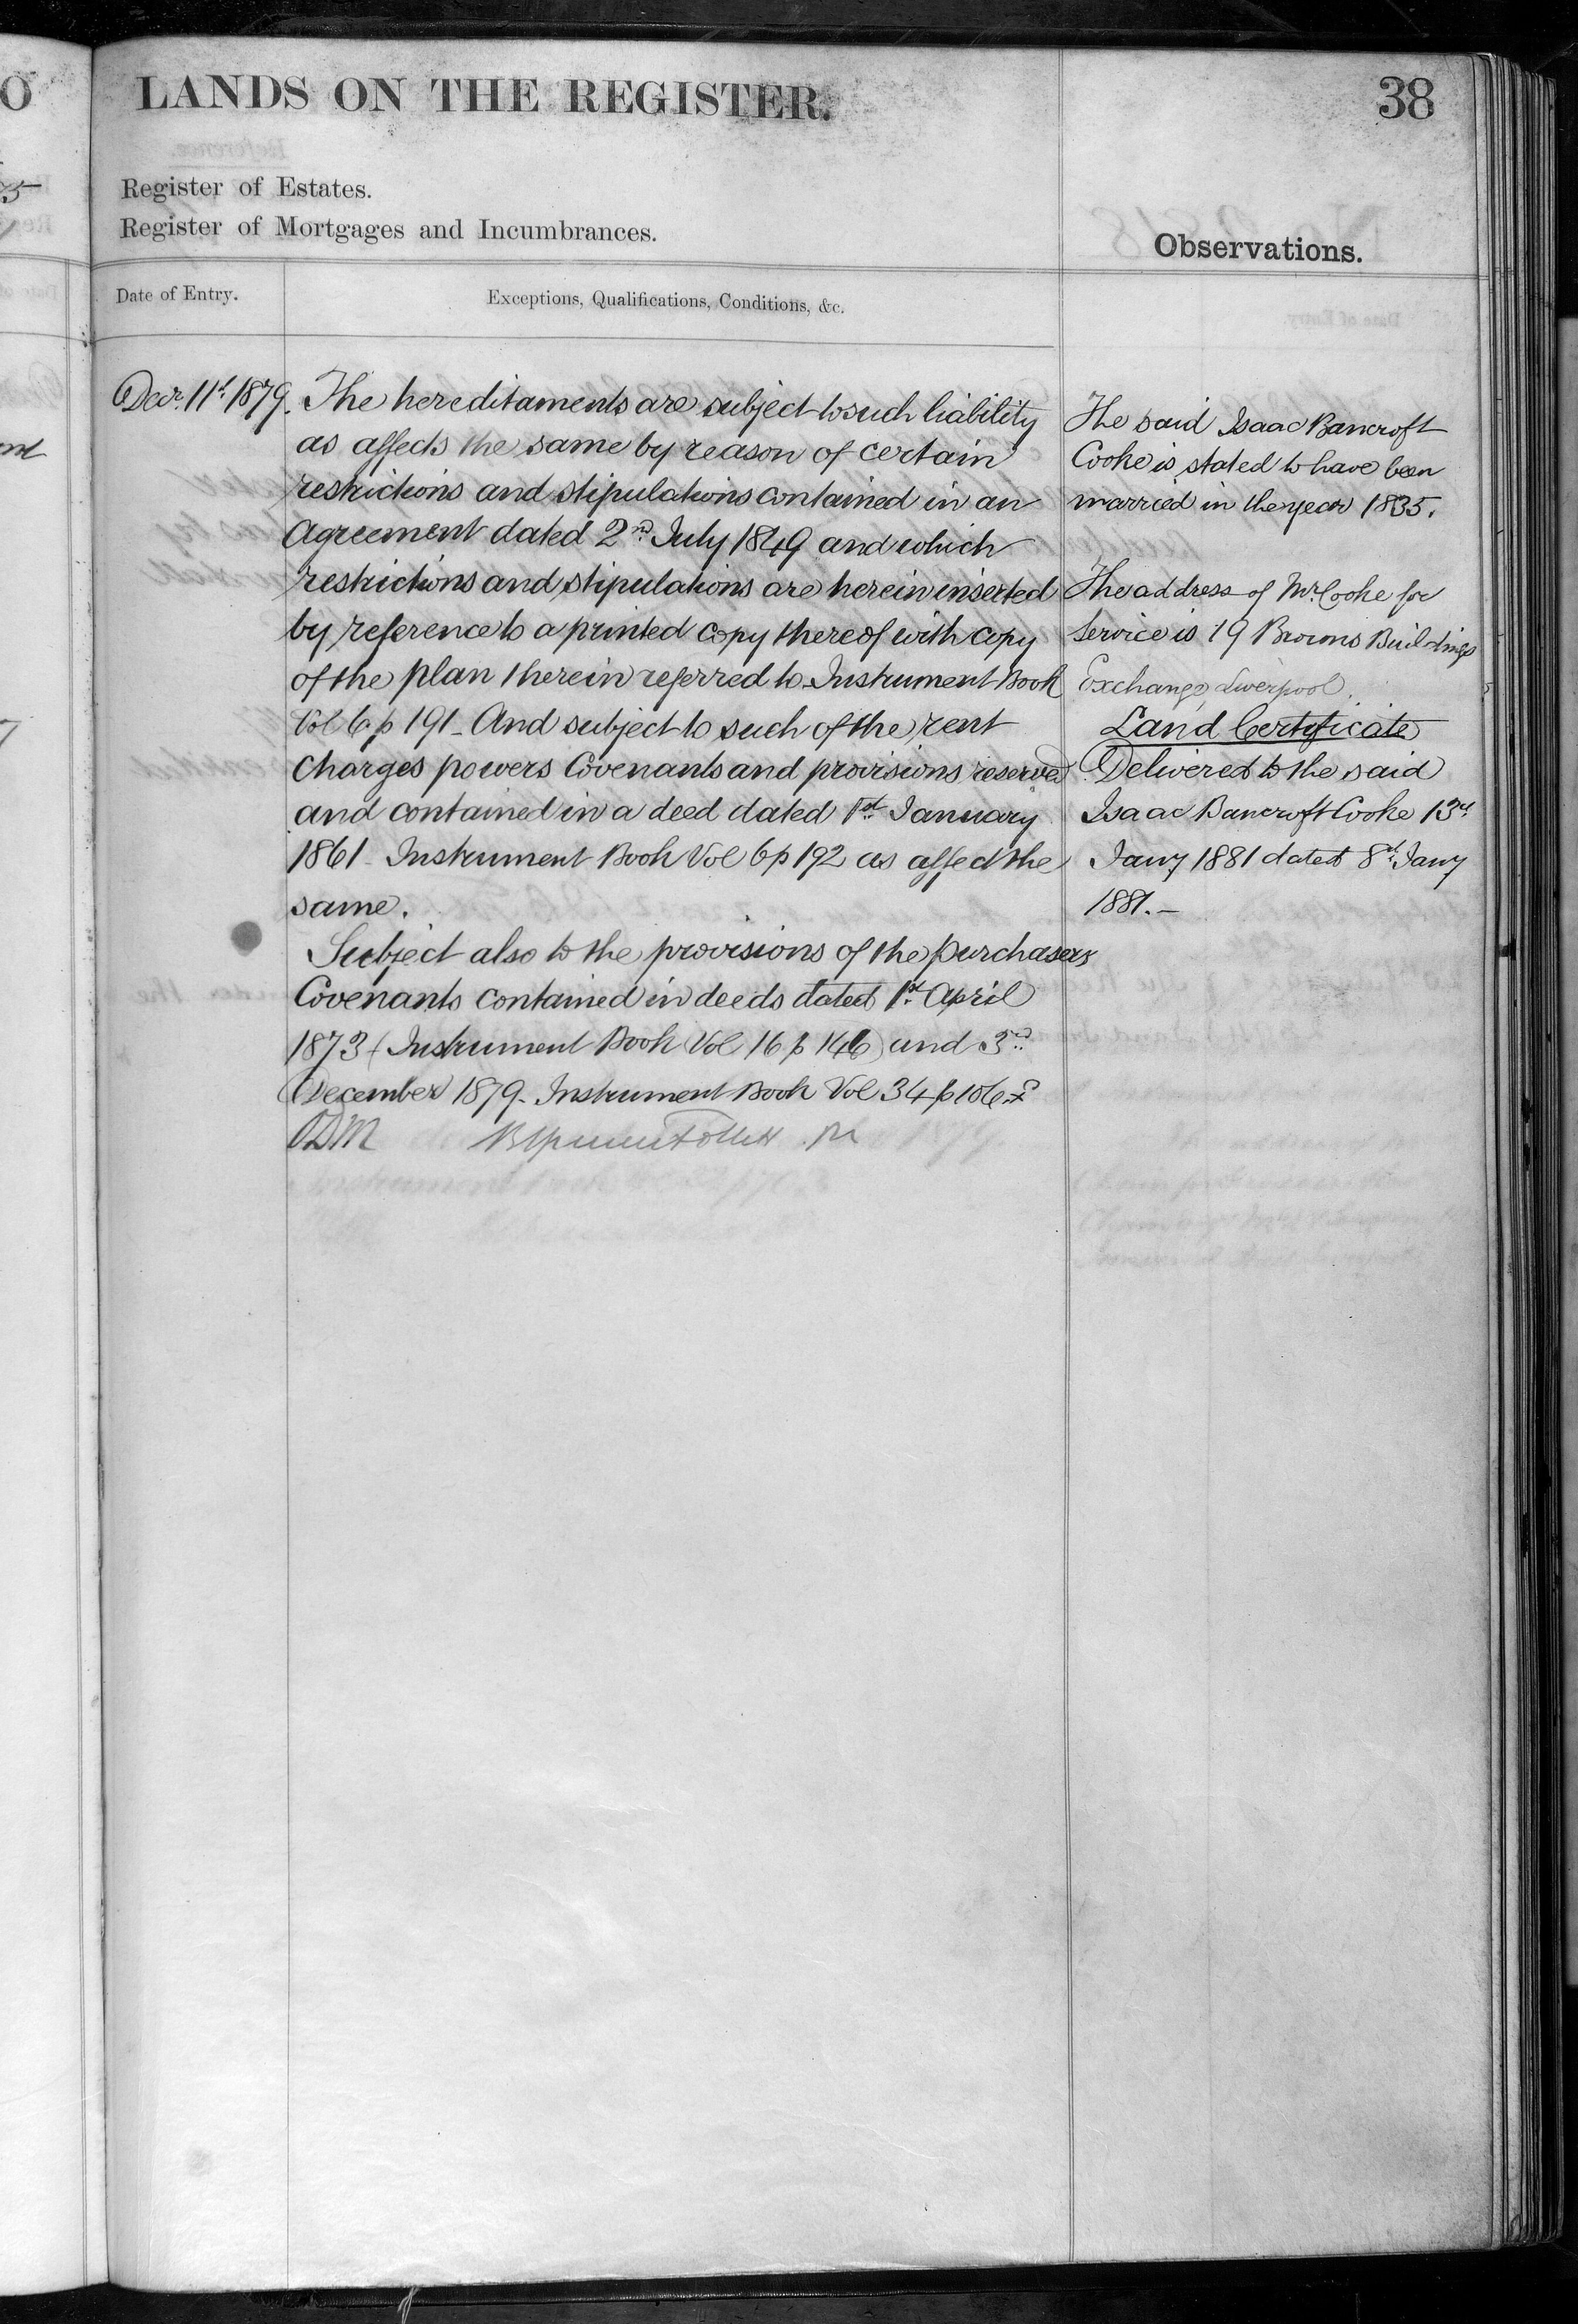 LANDS ON THE REGISTER.
38
Register of Estates.
Register of Mortgages and Incumbrances.
Observations.
Date of Entry.
Exceptions, Qualifications, Conditions, &c.
Decr. 11t 1879.
The hereditaments are subject to such liability
as affects the same by reason of certain
restrictions and stipulations contained in an
Agreement dated 2nd July 1849 and which
restrictions and stipulations are herein inserted
by reference to a printed copy thereof with copy
of the plan therein referred to Instrument Book
Vol 6 p 191 - And subject to such of the rent
charges powers Covenants and provisions reserved
and contained in a deed dated 1st January
1861 - Instrument Book Vol 6 p 192 as affect the
same.
Subject also to the provisions of the purchasers
Covenants contained in deeds dated 1st April
1873 (Instrument Book Vol 16 p 146) and 3rd
December 1879 - Instrument Book Vol 34 p 106.
The said Isaac Bancroft
Cooke is stated to have been
married in the year 1835.
The address of Mr. Cooke for
Service is 19 Browns Buildings
Exchange Liverpool.
Land Certificate
Delivered to the said
Isaac Bancroft Cooke 13th
Jany 1881 dated 8th Jany
1881. -